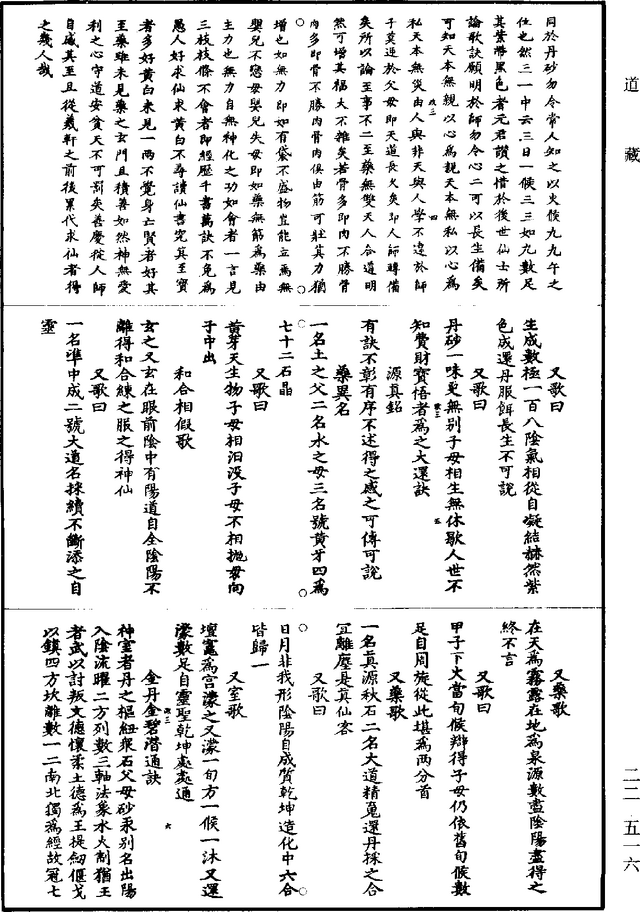 道藏
二二·五一六
同於丹砂勿令常人知之以火候九九午之
位也然三一中云三日一候三三如九數足
其葉帶黑色者元君讚之惜於後世仙士所
論歌訣顯明於師勿令心二可以長生備矣
可知天本無親以心為親天本無私以心為
私天本無災由人與非天與人學不違於師
子莫逆於父母即天道長久矣即人師轉備
矣所以論至事不二至藥無雙天人合道明
然可增其福大不雜矣若骨多即肉不勝骨
肉多即骨不勝肉骨肉俱由筋可壯其力猶
增也如無力即如有袋不盛物豈能立焉無
嬰兒不戀母嬰兒失母即如藥無筋為藥由
主力也無力自無神化之功如會者一言見
三枝枝條不會者即經歷千書萬訣不免為
愚人好求仙求黃白不尋讀仙書究其至寶
者多好黃白未見一兩不覺身亡賢者好其
至藥雖未見藥之玄門且積善如然神無愛
利之心守道安貧天不可罰矣善慶從人師
自感其至且從羲軒之前後累代求仙者得
之幾人哉
又歌曰
生成數極一百八陰氣相從自凝結赫然紫
色成還丹服餌長生不可說
又歌曰
丹砂一味更無別子母相生無休歇人世不
知費財寶悟者為之大還訣
源真銘
有訣不彰有序不述得之感之可傳可說
藥異名
一名土之父二名水之母三名號黃牙四為
七十二石晶
又歌曰
黃芽天生物子母相汩没子母不相拋母向
子中出
和合相假歌
玄之又玄在眼前陰中有陽道自全陰陽不
離得和合練之服之得神仙
又歌曰
一名準中成二號大道名採續不斷添之自
靈
又藥歌
在天為霧露在地為泉源數盡陰陽盡得之
終不言
又歌曰
甲子下火當旬候辯得子母仍依舊旬候數
足自周旋從此堪為兩分首
又藥歌
一名真源秋石二名大道精䰟還丹採之合
冝離塵是真仙客
又歌曰
日月非我形陰陽自成質乾坤造化中六合
皆歸一
又室歌
壇竈為宮濛之又濛一旬方一候一沐又還
濛數足自靈聖乾坤處處通
金丹金碧潛通訣
神室者丹之樞紐衆石父母砂汞別名出陽
入陰流曜二方列數三軸法象水火制猶王
者武以討叛文德懷柔土德為王提紉偃戈
以鎮四方坎離數一二南北獨為經故冠七